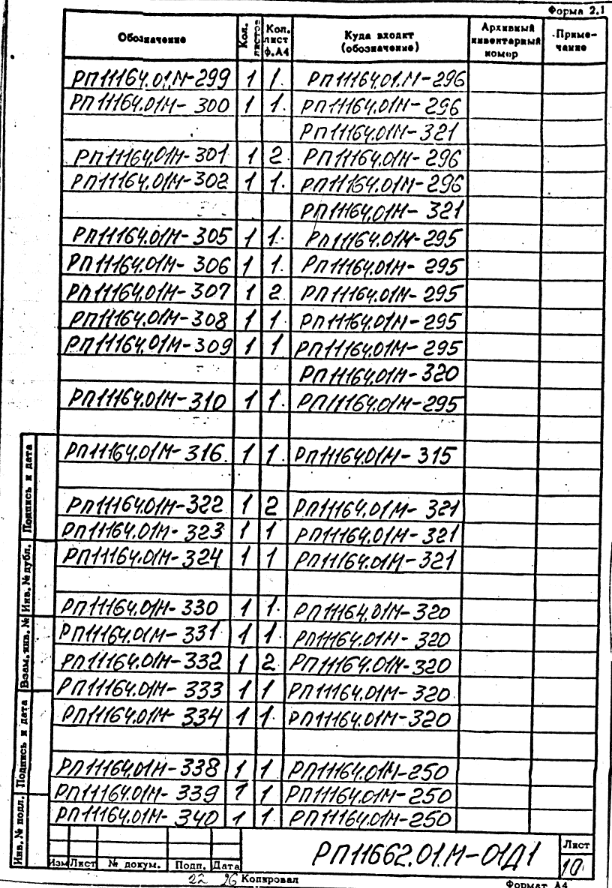 Форма 2.1
Обозначение Кол. листов Кол. лист ф.А4 Куда входит (обозначение) Архивный инвентарный номер Приме-чание
РП11164.01М-299 1 1. РП11164.01М-296
РП11164.01М-300 1 1. РП11164.01М-296
РП11164.01М-321
РП11164.01М-301 1 2. РП11164.01М-296
РП11164.01М-302 1 1. РП11164.01М-296
РП11164.01М-321
РП11164.01М-305 1 1. РП11164.01М-295
РП11164.01М-306 1 1. РП11164.01М-295
РП11164.01М-307 1 2 РП11164.01М-295
РП11164.01М-308 1 1. РП11164.01М-295
РП11164.01М-309 1 1 РП11164.01М-295
РП11164.01М-320
РП11164.01М-310 1 1. РП11164.01М-295
РП11164.01М-316. 1 1. РП11164.01М-315
РП11164.01М-322 1 2 РП11164.01М-321
РП11164.01М-323 1 1 РП11164.01М-321
РП11164.01М-324 1 1 РП11164.01М-321
РП11164.01М-330 1 1. РП11164.01М-320
РП11164.01М-331 1 1. РП11164.01М-320
РП11164.01М-332 1 2. РП11164.01М-320
РП11164.01М-333 1 1 РП11164.01М-320
РП11164.01М-334 1 1. РП11164.01М-320
РП11164.01М-338 1 1. РП11164.01М-250
РП11164.01М-339 1 1. РП11164.01М-250
РП11164.01М-340 1 1. РП11164.01М-250
Инв. № подл. Подпись и дата Взам. инв. № Инв. № дубл. Подпись и дата
Изм Лист № докум. Подп. Дата
РП11662.01.М-01Д1
Лист
10
22 26 Копировал
Формат А4